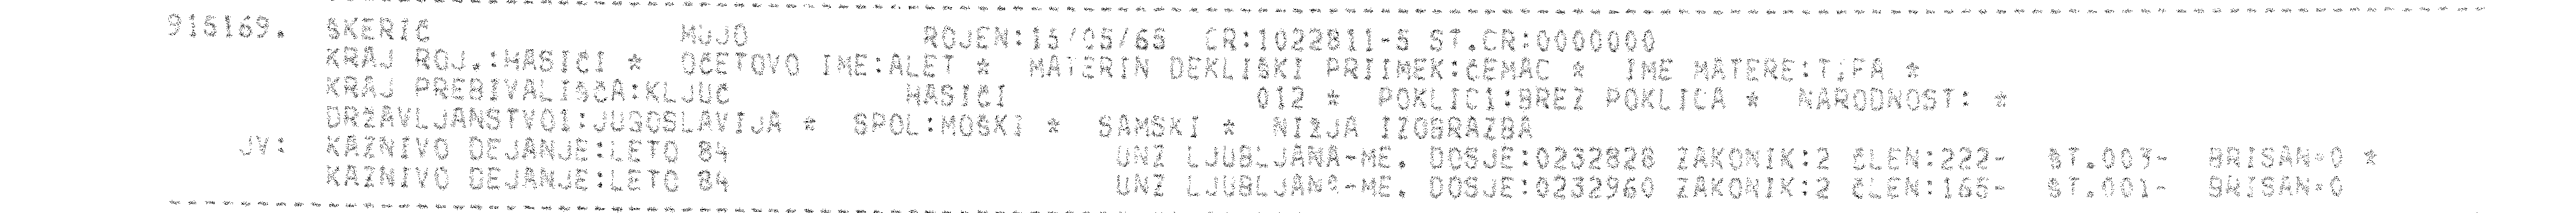 915169. ŠKERIĆ MUJO ROJEN:15/05/65 CR:1022811-5 ST.CR:0000000
KRAJ ROJ.:HASIĆI * OČETOVO IME:ALET * MATERIN DEKLIŠKI PRIIMEK:ČEMAC * IME MATERE:TIFA *
KRAJ PREBIVALIŠČA:KLJUČ HASIĆI 012 * POKLIC1:BREZ POKLICA * NARODNOST: *
DRŽAVLJANSTVO1:JUGOSLAVIJA * SPOL:MOŠKI * SAMSKI * NIŽJA IZOBRAZBA
JV: KAZNIVO DEJANJE:LETO 84 UNZ LJUBLJANA-ME. DOSJE:0232828 ZAKONIK:2 ČLEN:222- ŠT.003- BRISAN=0 *
KAZNIVO DEJANJE:LETO 84 UNZ LJUBLJANA-ME. DOSJE:0232960 ZAKONIK:2 ČLEN:165- ŠT.001- BRISAN=0